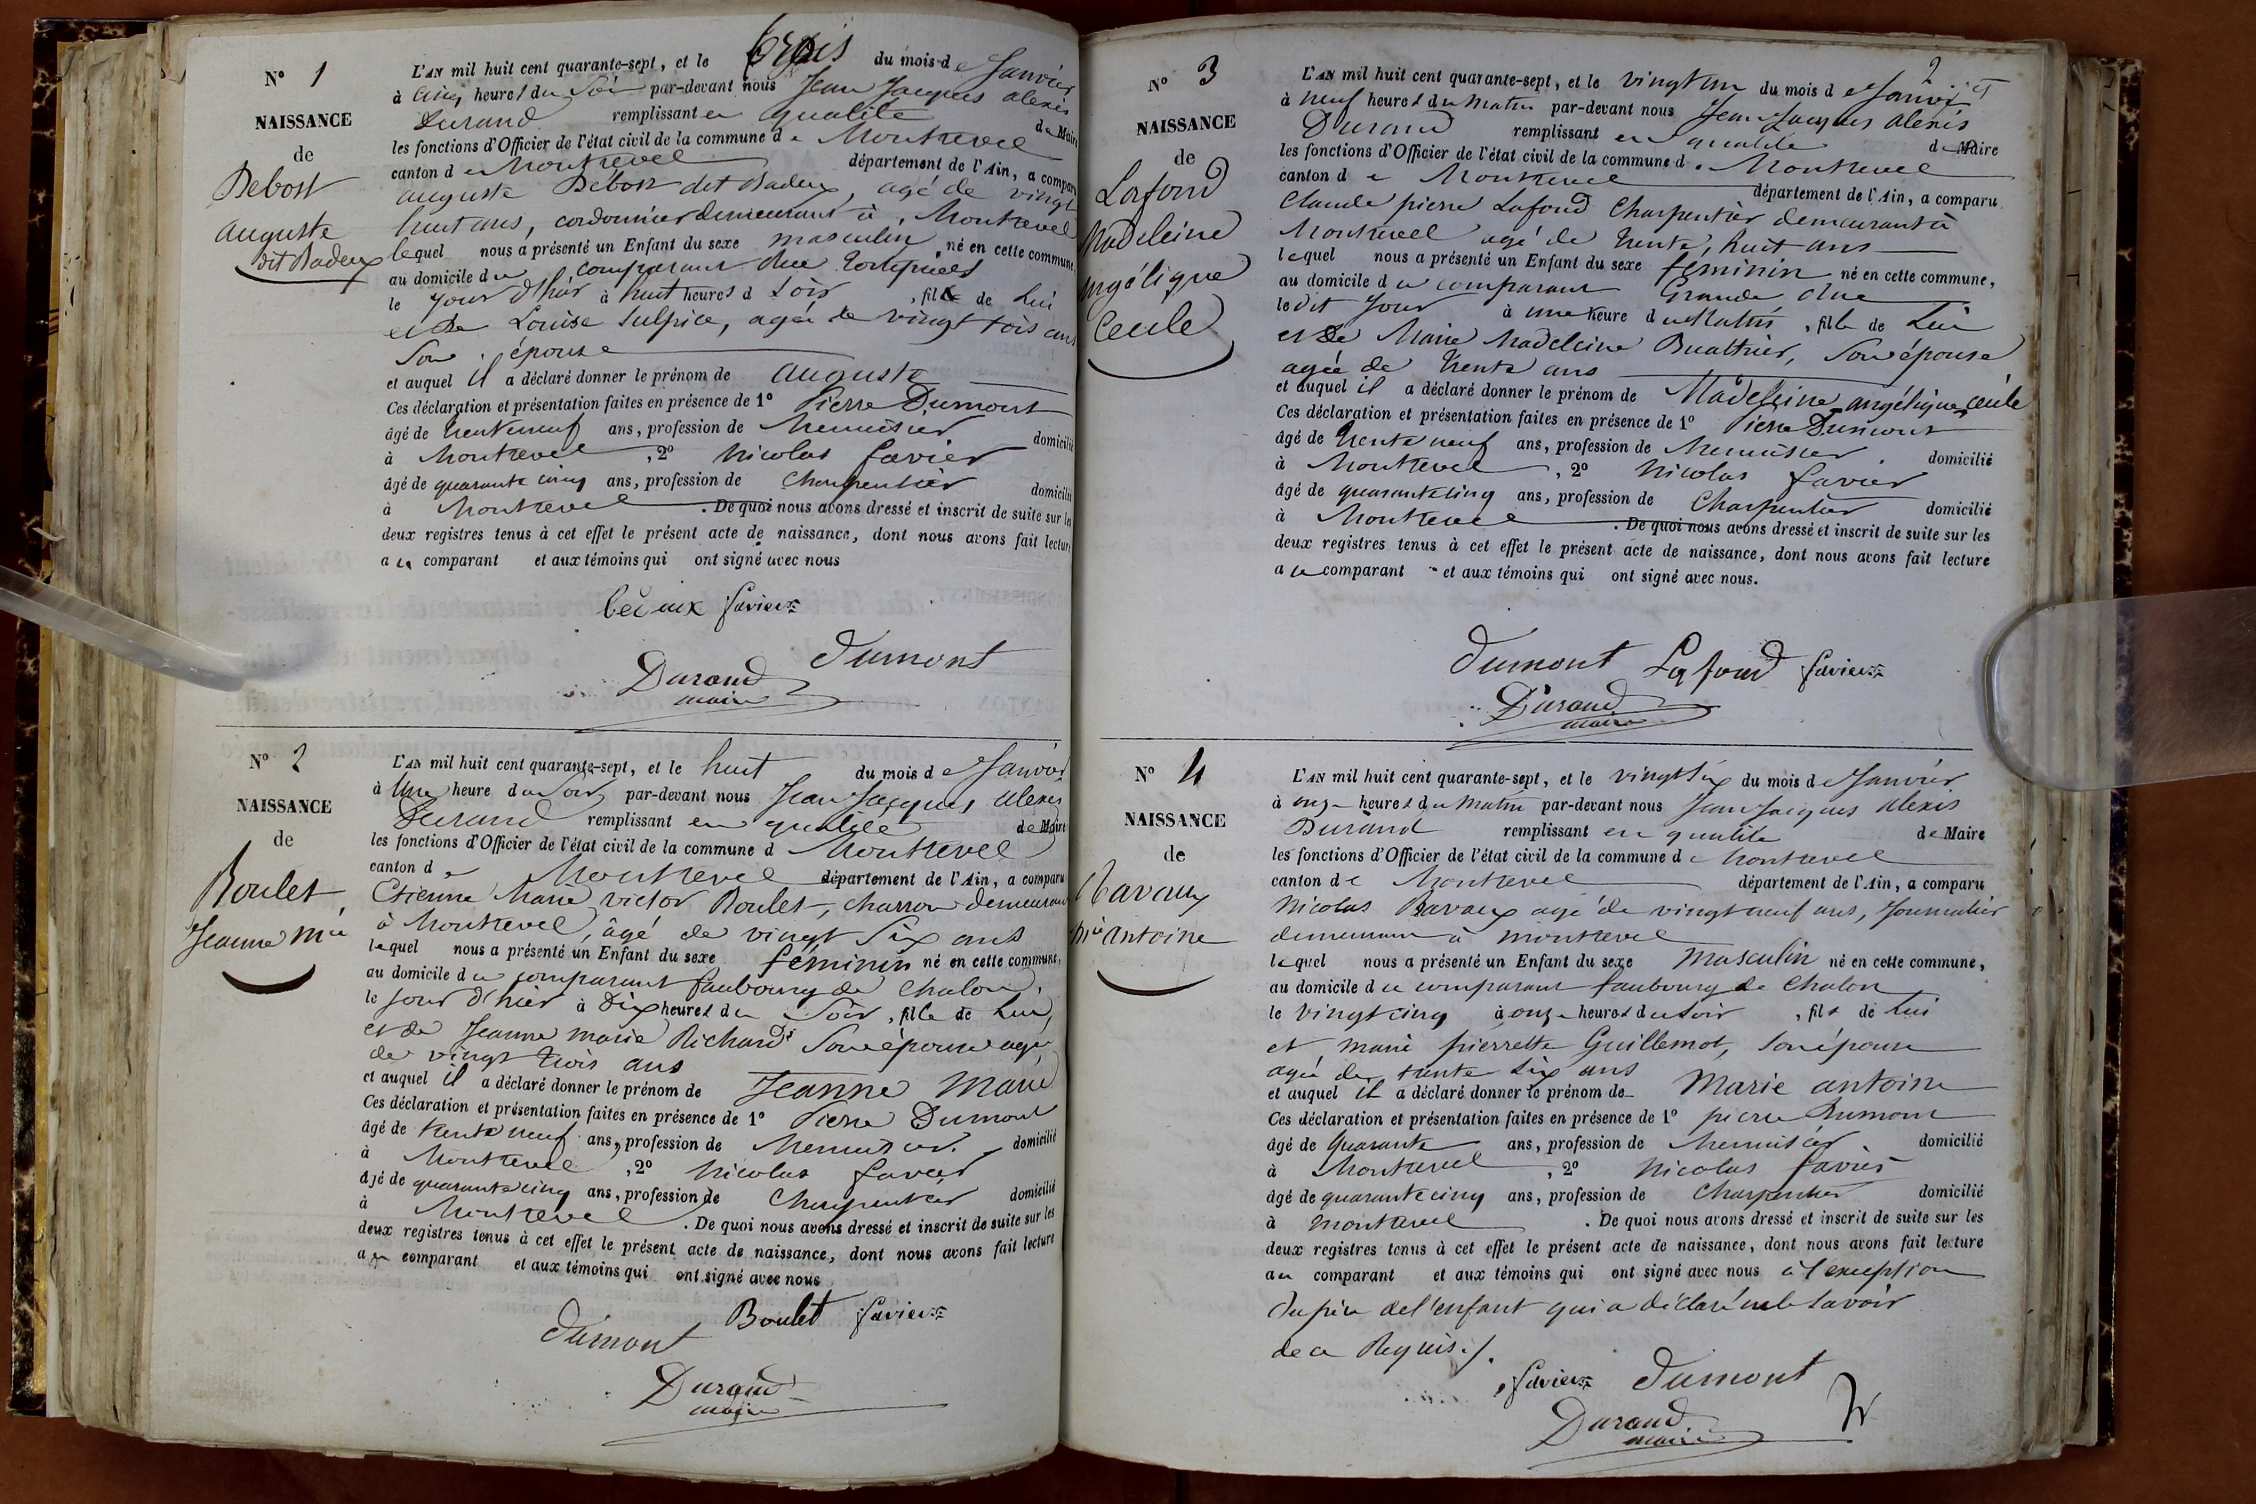 N° 1
NAISSANCE
de
Debost
Auguste
dit Badeux
L'AN mil huit cent quarante-sept, et le trois du mois de Janvier
à cinq heures du Soir par-devant nous Jean Jacques alexis
Durand remplissant en qualité de Maire
les fonctions d'Officier de l'état civil de la commune de Montrevel
canton de Montrevel département de l'Ain, a comparu
auguste Debost dit Badeux, agé de vingt
huit ans, cordonnier demeurant à Montrevel
lequel nous a présenté un Enfant du sexe masculin né en cette commune,
au domicile du comparant Rue
le jour d'hier à huit heures d Soir, fils de Lui
et De Louise Sulpice, agée de vingt trois ans
Son épouse
et auquel il a déclaré donner le prénom de auguste
Ces déclaration et présentation faites en présence de 1° Pierre Dumont
âgé de trente neuf ans, profession de Menuisier domicilié
à Montrevel, 2° Nicolas favier
âgé de quarante cinq ans, profession de Charpentier domicilié
à Montrevel. De quoi nous avons dressé et inscrit de suite sur les
deux registres tenus à cet effet le présent acte de naissance, dont nous avons fait lecture
au comparant et aux témoins qui ont signé avec nous
favier
Dumont
Durand
maire
N° 2
NAISSANCE
de
Boulet
Jeanne Mie
L'AN mil huit cent quarante-sept, et le huit du mois de Janvier
à Une heure du Soir par-devant nous Jean Jacques alexis
Durand remplissant en qualité de Maire
les fonctions d'Officier de l'état civil de la commune d Montrevel
canton de Montrevel département de l'Ain, a comparu
Etienne Marie victor Boulet, charron demeurant
à Montrevel, âgé de vingt Six ans
lequel nous a présenté un Enfant du sexe féminin né en cette commune,
au domicile du comparant faubourg de Chalon,
le jour d'hier à Dix heures du Soir, fille de Lui,
et de Jeanne marie Richard Son épouse agée
de vingt trois ans
et auquel il a déclaré donner le prénom de Jeanne Marie
Ces déclaration et présentation faites en présence de 1° Pierre Dumont
âgé de trente neuf ans, profession de Menuisier domicilié
à Montrevel, 2° Nicolas favier
âgé de quarante cinq ans, profession de Charpentier domicilié
à Montrevel. De quoi nous avons dressé et inscrit de suite sur les
deux registres tenus à cet effet le présent acte de naissance, dont nous avons fait lecture
au comparant et aux témoins qui ont signé avec nous
Boulet favier
Dumont
Durand
maire
2
N° 3
NAISSANCE
de
Lafond
Madeleine
angélique
Cecile
L'AN mil huit cent quarante-sept, et le vingt un du mois de Janvier
à neuf heures du Matin par-devant nous Jean Jacques alexis
Durand remplissant en qualité de Maire
les fonctions d'Officier de l'état civil de la commune de Montrevel
canton de Montrevel département de l'Ain, a comparu
Claude pierre Lafond Charpentier demeurant à
Montrevel agé de trente huit ans
lequel nous a présenté un Enfant du sexe féminin né en cette commune,
au domicile du comparant Grande Rue
le dit Jour à une heure du Matin, fille de Lui
et De Marie Madeleine Buathier, Son épouse
agée de trente ans
et auquel il a déclaré donner le prénom de Madeleine angélique cecile
Ces déclaration et présentation faites en présence de 1° Pierre Dumont
âgé de trente neuf ans, profession de Menuisier domicilié
à Montrevel, 2° Nicolas favier
âgé de quarante cinq ans, profession de Charpentier domicilié
à Montrevel. De quoi nous avons dressé et inscrit de suite sur les
deux registres tenus à cet effet le présent acte de naissance, dont nous avons fait lecture
au comparant et aux témoins qui ont signé avec nous.
Dumont Lafond favier
Durand
maire
N° 4
NAISSANCE
de
Ravaux
Mie antoine
L'AN mil huit cent quarante-sept, et le vingt Six du mois de Janvier
à onze heures du Matin par-devant nous Jean Jacques Alexis
Durand remplissant en qualité de Maire
les fonctions d'Officier de l'état civil de la commune de Montrevel
canton de Montrevel département de l'Ain, a comparu
Nicolas Ravaux agé de vingt neuf ans, Journalier
demeurant à montrevel
lequel nous a présenté un Enfant du sexe Masculin né en cette commune,
au domicile du comparant faubourg de Chalon
le vingt cinq à onze heures du soir, fils de Lui
et marie pierrette Guillemot, Son épouse
agée de trente Six ans
et auquel il a déclaré donner le prénom de Marie antoine
Ces déclaration et présentation faites en présence de 1° pierre Dumont
âgé de Quarante ans, profession de Menuisier domicilié
à Montrevel, 2° Nicolas favier
âgé de quarante cinq ans, profession de Charpentier domicilié
à Montrevel. De quoi nous avons dressé et inscrit de suite sur les
deux registres tenus à cet effet le présent acte de naissance, dont nous avons fait lecture
au comparant et aux témoins qui ont signé avec nous à l'exception
du père de l'enfant qui a déclaré ne le savoir
de ce Requis ./.
favier Dumont
Durand
maire